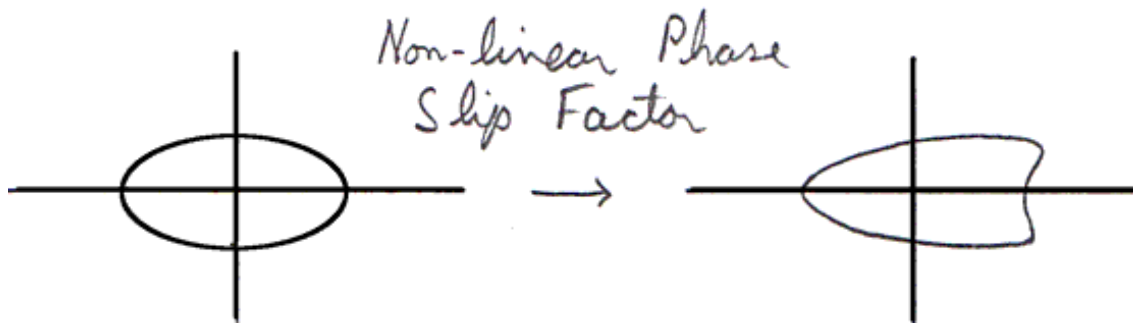 Non-linear Phase
Slip Factor